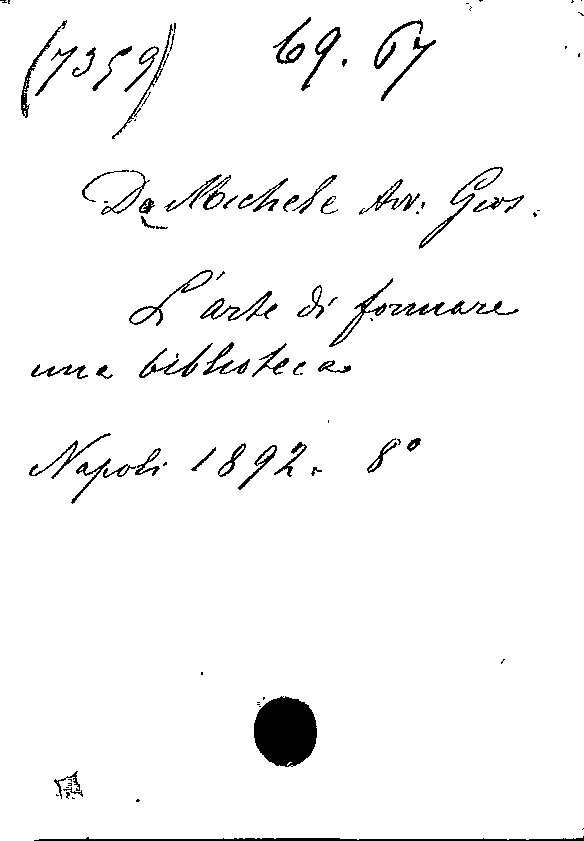 (7359) 69. 67
De Michele Avv. Gius.
L'arte di formare
una biblioteca
Napoli 1892. 8°